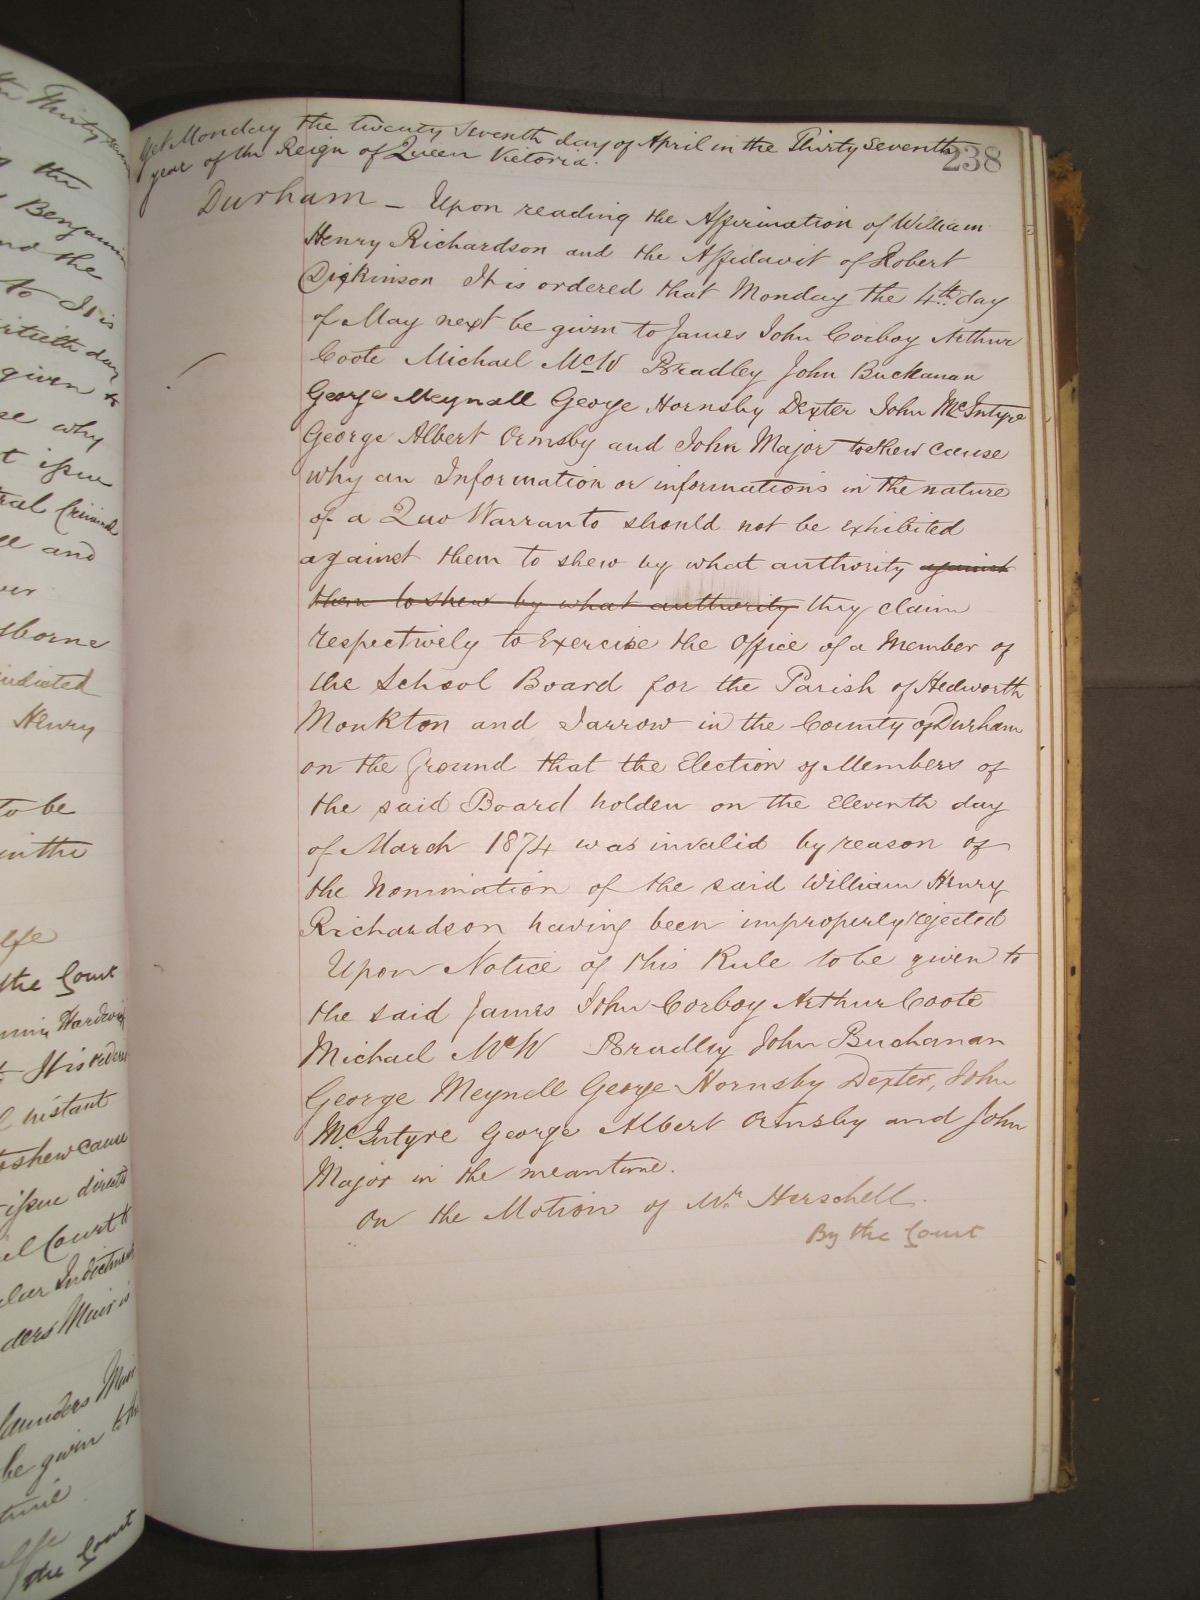 Yet Monday the twenty Seventh day of April in the Thirty Seventh
238
year of the Reign of Queen Victoria.
Durham - Upon reading the Affirmation of William
Henry Richardson and the Affidavit of Robert
Dickinson It is ordered that Monday the 4th day
of May next be given to James John Corboy Arthur
Coote Michael McW Bradley John Buchanan
George Meynell George Hornsby Dexter John McIntyre
George Albert Ormsby and John Major to shew cause
why an Information or informations in the nature
of a Quo Warranto should not be exhibited
against them to shew by what authority against
them to shew by what authority they claim
respectively to Exercise the Office of a Member of
the School Board for the Parish of Hedworth
Monkton and Jarrow in the County of Durham
on the Ground that the Election of Members of
the said Board holden on the Eleventh day
of March 1874 was invalid by reason of
the Nomination of the said William Henry
Richardson having been improperly rejected
Upon Notice of this Rule to be given to
the said James John Corboy Arthur Coote
Michael McW Bradley John Buchanan
George Meynell George Hornsby Dexter, John
McIntyre George Albert Ormsby and John
Major in the meantime.
On the Motion of Mr. Herschell.
By the Court
the Thirty
the
Benjamin
and the
to It is
day
given to
why
t issue
and
sborne
indicted
Henry
to be
in the
the Court
It is ordered
instant
to shew cause
issue directed
Court to
Indictment
Muir is
Saunders Muir
be given to the
the Court